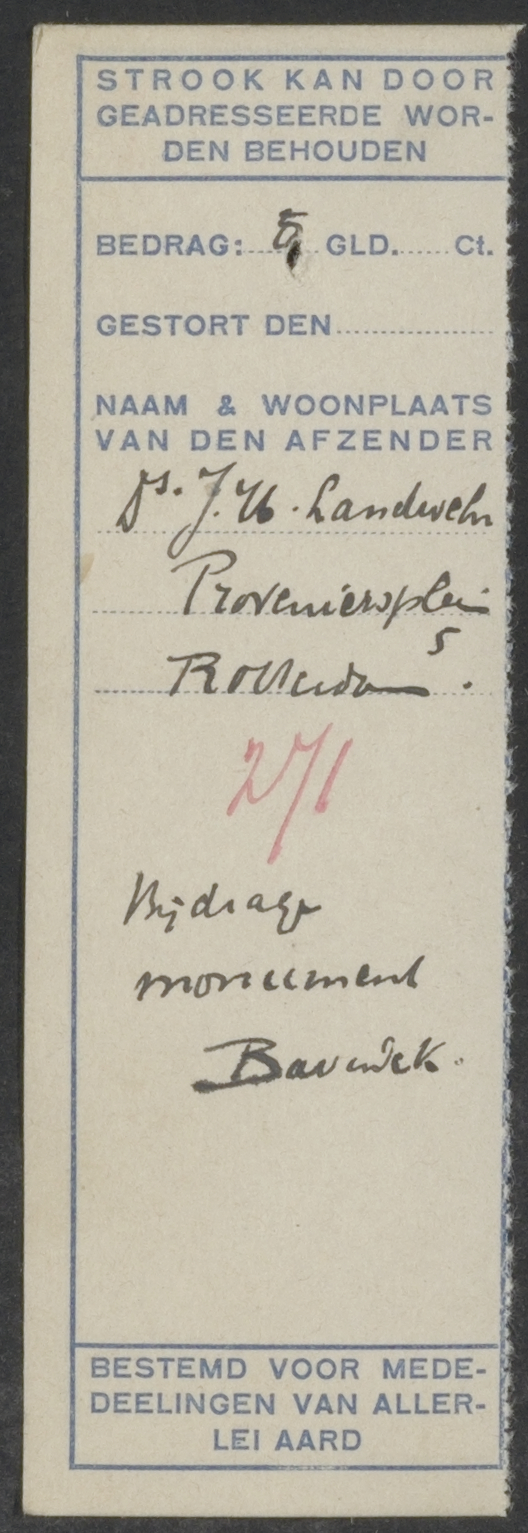 STROOK KAN DOOR
GEADRESSEERDE WOR-
DEN BEHOUDEN
BEDRAG: 5 GLD. Ct.
GESTORT DEN
NAAM & WOONPLAATS
VAN DEN AFZENDER
Ds. J. H. Landwehr
Proveniersplein
5
Rotterdam.
271
Bijdrage
monument
Bavinck.
BESTEMD VOOR MEDE-
DEELINGEN VAN ALLER-
LEI AARD